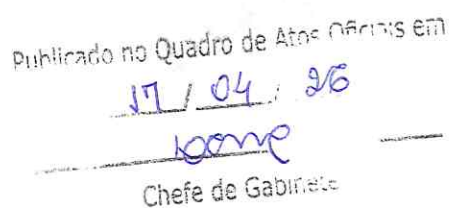 Publicado no Quadro de Atos Oficiais em
17 / 04 / 26
Chefe de Gabinete